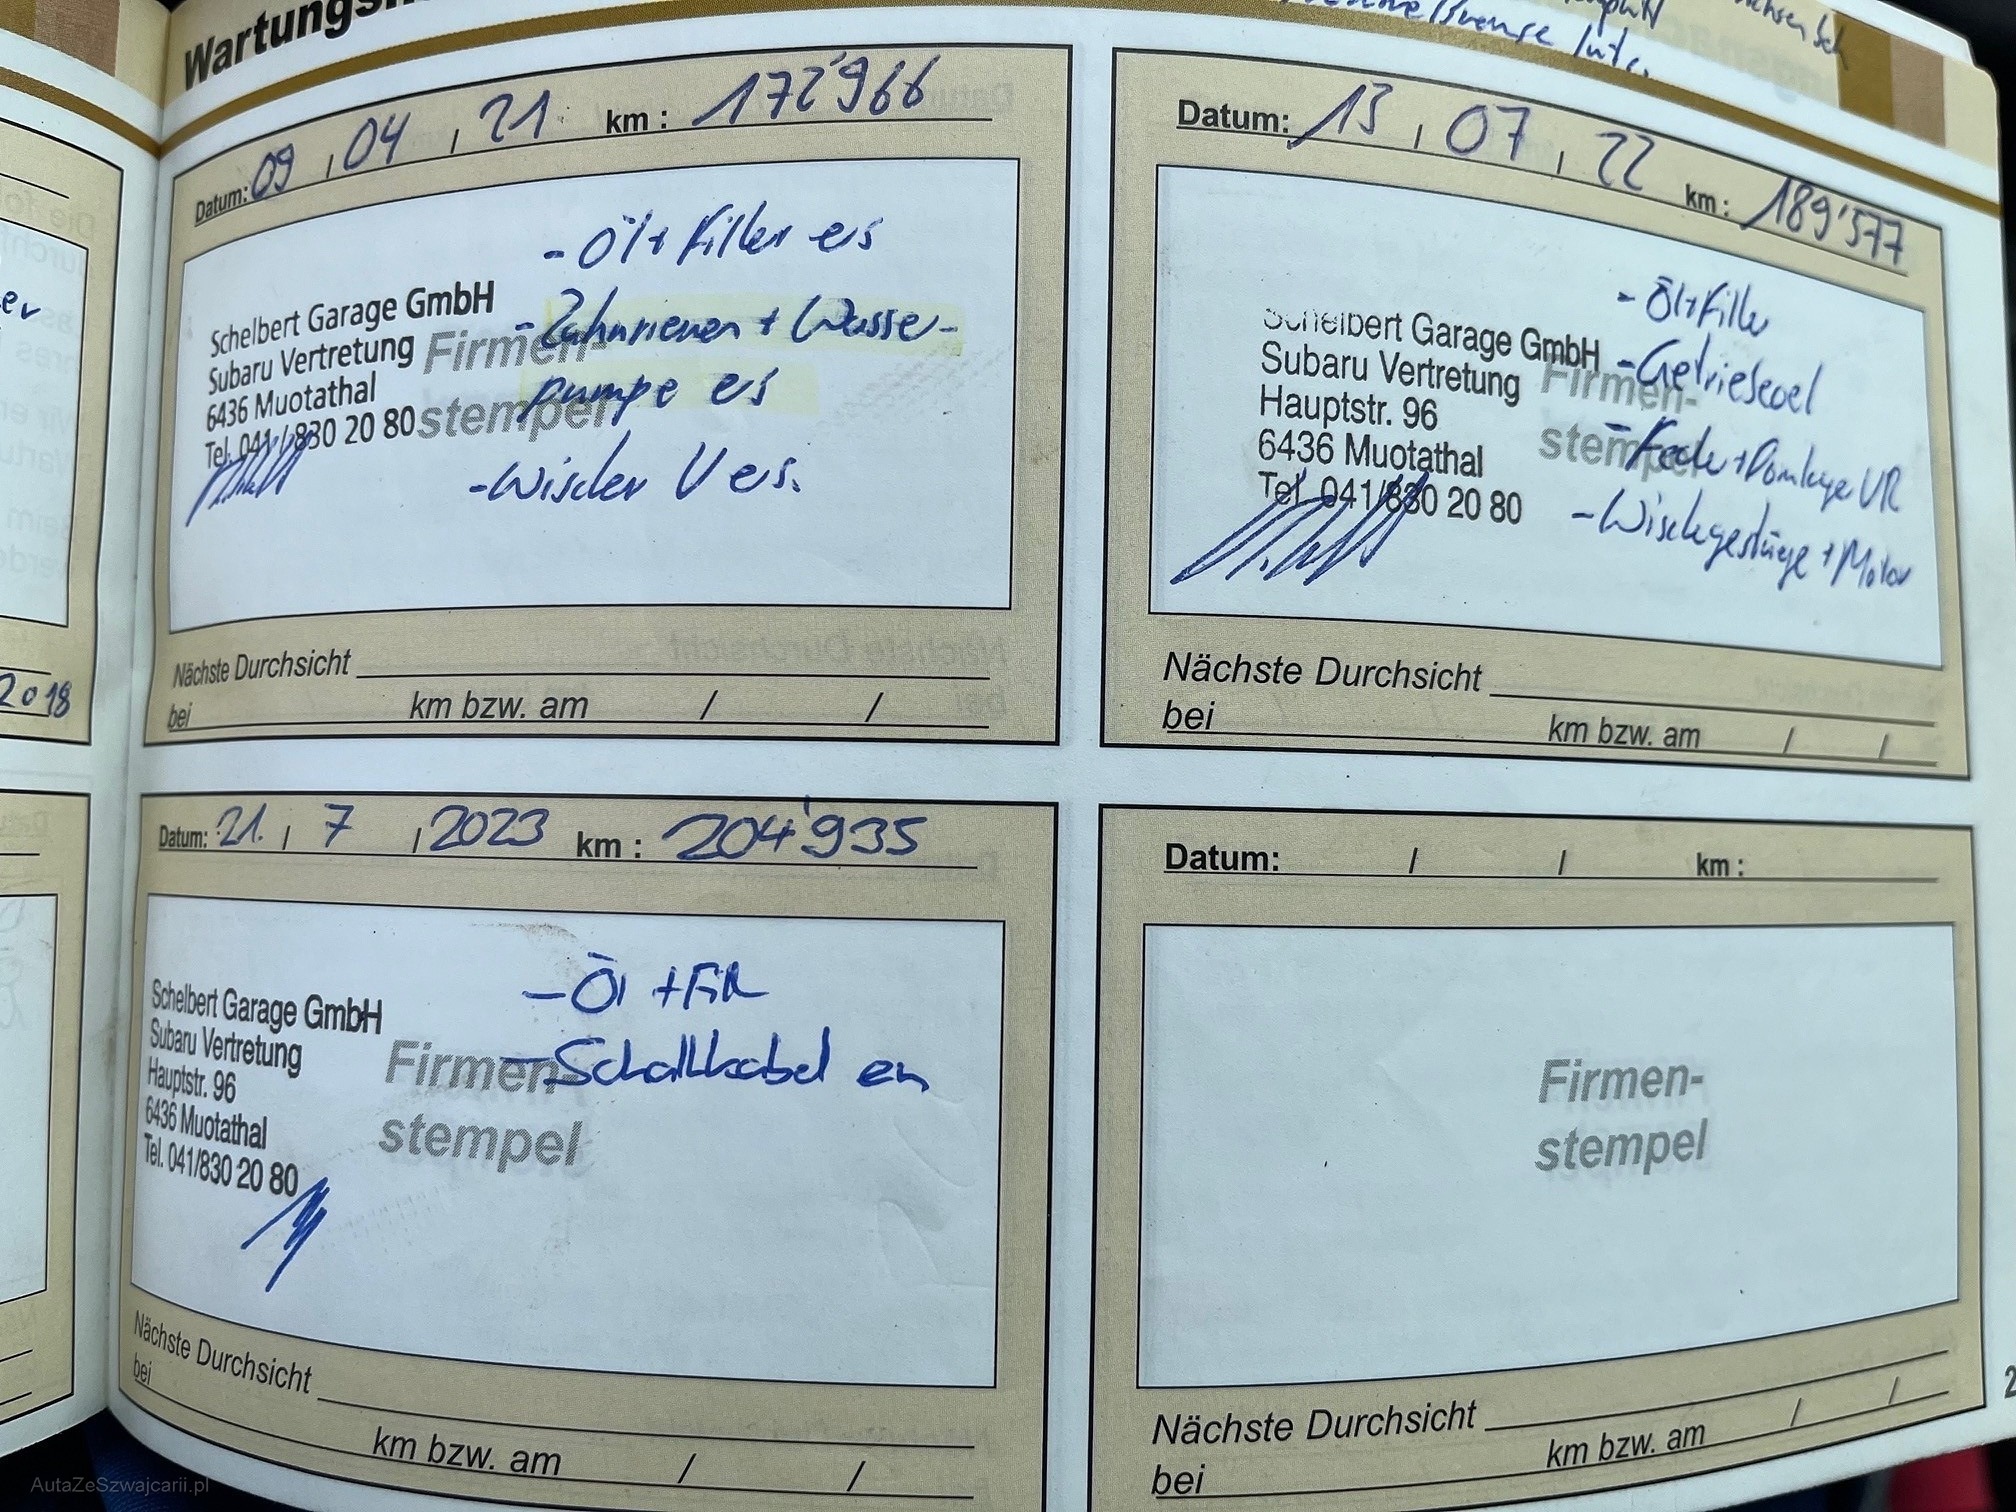 Datum: 09 / 04 / 21 km : 172'966
- Öl + Filter ers
Schelbert Garage GmbH
Subaru Vertretung
6436 Muotathal
Tel. 041 / 830 20 80
Firmen-
stempel
- Zahnriemen + Wasser-
pumpe ers
- Wischer V ers.
Nächste Durchsicht
bei km bzw. am / /
Datum: 13 / 07 / 22 km : 189'577
Schelbert Garage GmbH
Subaru Vertretung
Hauptstr. 96
6436 Muotathal
Tel. 041/830 20 80
Firmen-
stempel
- Öl + Filter
- Getriebeoel
- Feder + Domlager VR
- Wischergestänge + Motor
Nächste Durchsicht
bei km bzw. am / /
2018
Datum: 21. / 7 / 2023 km : 204'935
Schelbert Garage GmbH
Subaru Vertretung
Hauptstr. 96
6436 Muotathal
Tel. 041/830 20 80
Firmen-
stempel
- Öl + Filt
- Schaltkabel ern
Nächste Durchsicht
bei km bzw. am / /
Datum: / / km :
Firmen-
stempel
Nächste Durchsicht
bei km bzw. am / /
AutaZeSzwajcarii.pl